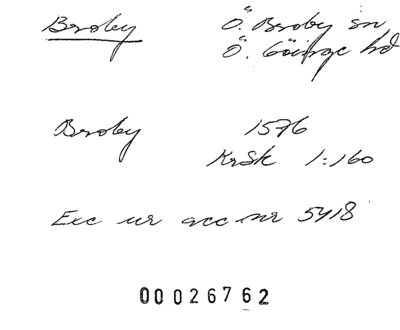 Broby Ö. Broby sn
Ö. Göinge hd
Broby 1576
KrSk 1:160
Exc ur acc nr 5418
00026762